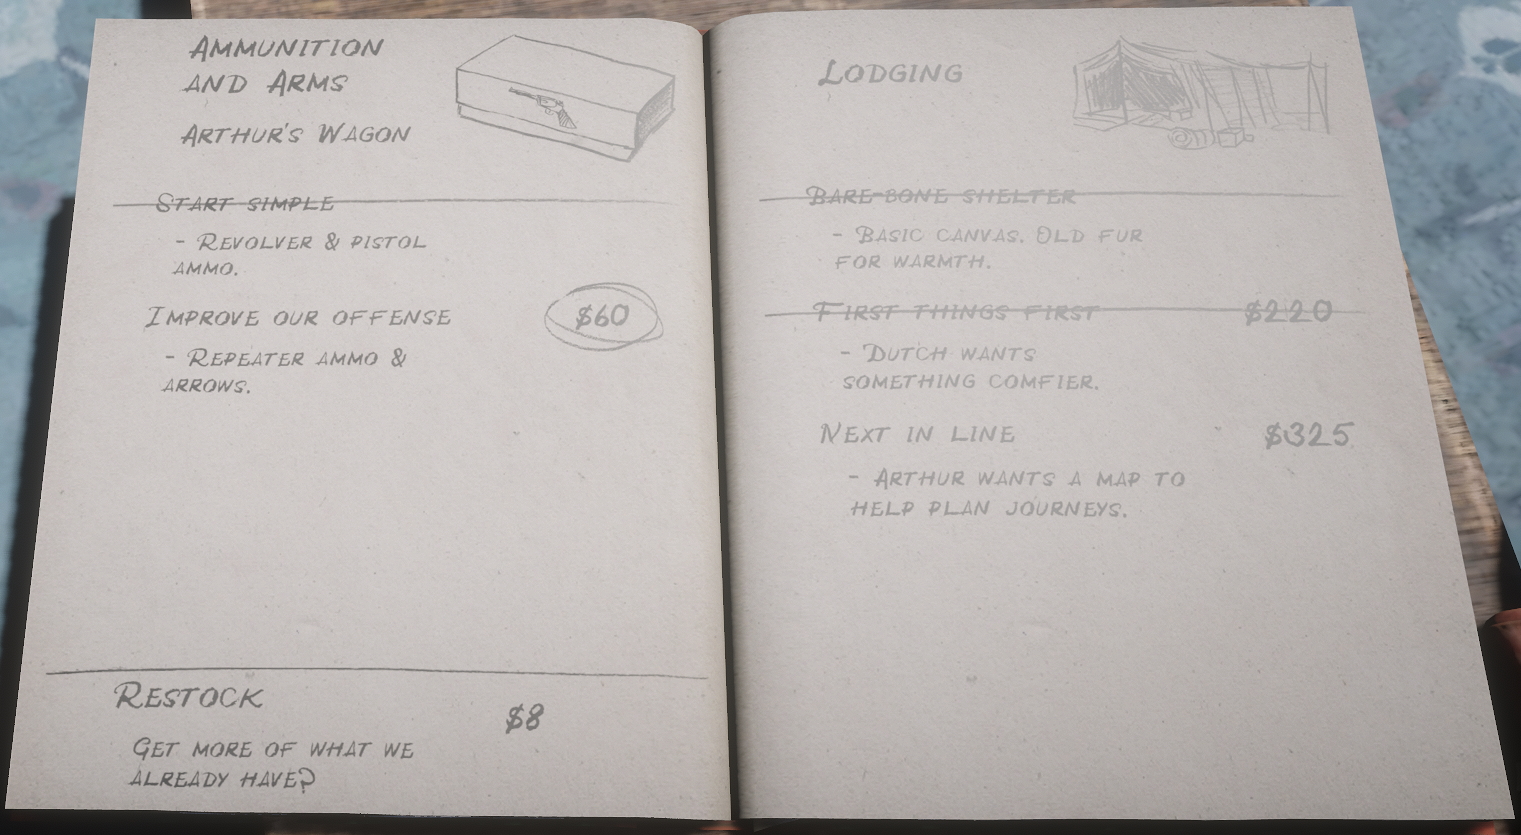 Ammunition
and Arms
Arthur's Wagon
Start simple
- Revolver & pistol
ammo.
Improve our offense $60
- Repeater ammo &
arrows.
Restock
$8
Get more of what we
already have?
Lodging
Bare-bone shelter
- Basic canvas. Old fur
for warmth.
First things first $220
- Dutch wants
something comfier.
Next in line $325
- Arthur wants a map to
help plan journeys.